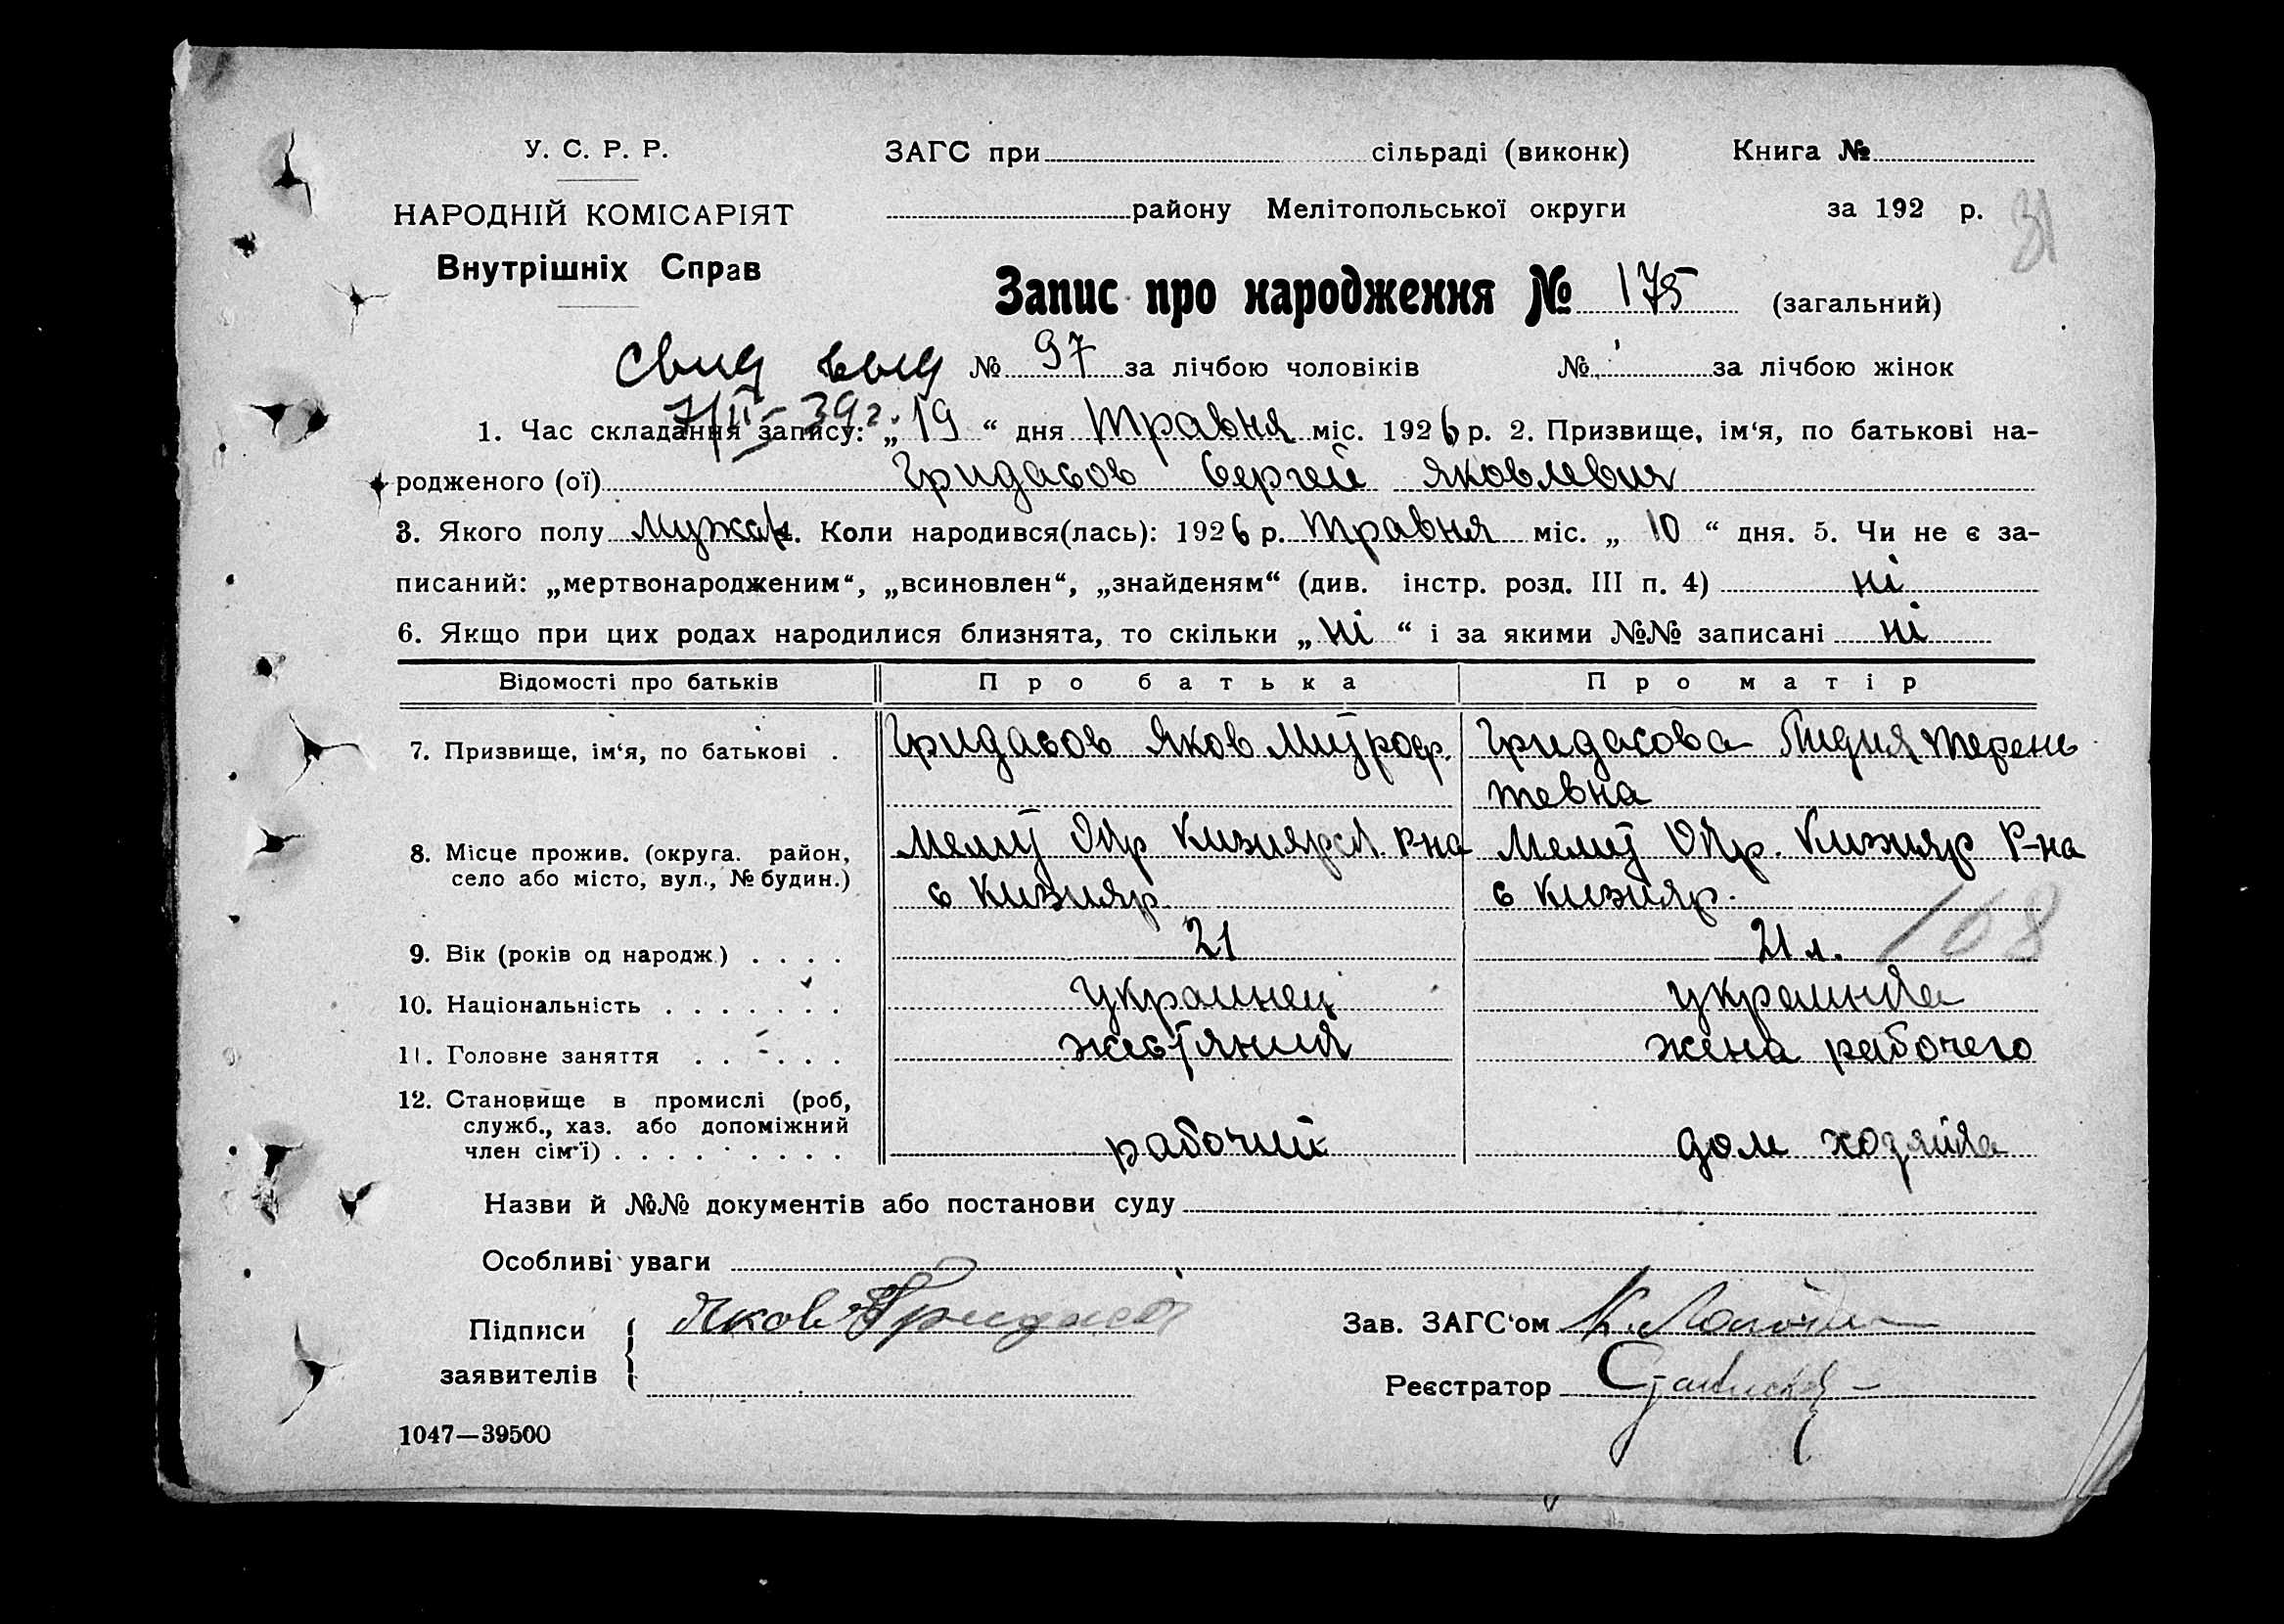 У. С. Р. Р.
ЗАГС при сільраді (виконк) Книга №
НАРОДНІЙ КОМІСАРІЯТ
району Мелітопольської округи за 192 р.
81
Внутрішніх Справ
Запис про народження № 175 (загальний)
Свид выд № 97 за лічбою чоловіків № за лічбою жінок
7/II-39г.
1. Час складання запису: „19“ дня Травня міс. 1926 р. 2. Призвище, ім‘я, по батькові на-
родженого (ої) Гридасов Сергей Яковлевич
3. Якого полу мужск 4. Коли народився(лась): 1926 р. Травня міс. „10“ дня. 5. Чи не є за-
писаний: „мертвонародженим“, „всиновлен“, „знайденям“ (див. інстр. розд. III п. 4) ні
6. Якщо при цих родах народилися близнята, то скільки „ні“ і за якими №№ записані ні
Відомості про батьків Про батька Про матір
7. Призвище, ім‘я, по батькові . Гридасов Яков Митроф. Гридасова Лидия Терень
тевна
8. Місце прожив. (округа. район, Мелит Окр Кизиярск. Р-на Мелит Окр. Кизияр Р-на
село або місто, вул., № будин.) с Кизияр с Кизияр.
168
9. Вік (років од народж.) . . . . 21 21 л.
10. Національність . . . . . . . Украинец украинка
11. Головне заняття . . . . . . жестяник жена рабочего
12. Становище в промислі (роб,
служб., хаз. або допоміжний
член сім‘ї) . . . . . . . . . . рабочий дом хозяйка
Назви й №№ документів або постанови суду
Особливі уваги
Підписи Яков Гридасов Зав. ЗАГС‘ом
заявителів Реєстратор
1047—39500